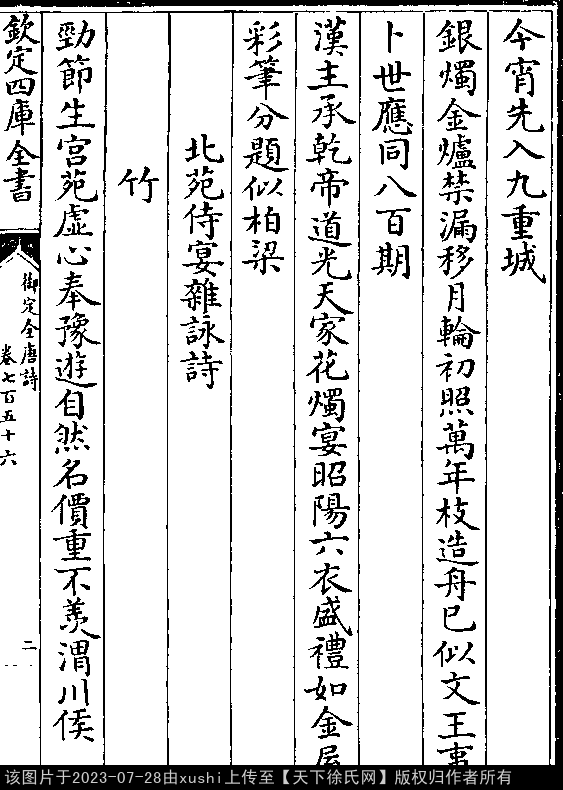 今宵先入九重城
銀燭金爐禁漏移月輪初照萬年枝造舟已似文王事
卜世應同八百期
漢主承乾帝道光天家花燭宴昭陽六衣盛禮如金屋
彩筆分題似柏梁
北苑侍宴雜詠詩
竹
勁節生宫苑虚心奉豫遊自然名價重不羨渭川侯
欽定四庫全書
御定全唐詩
卷七百五十六
二
该图片于2023-07-28由xushi上传至【天下徐氏网】版权归作者所有